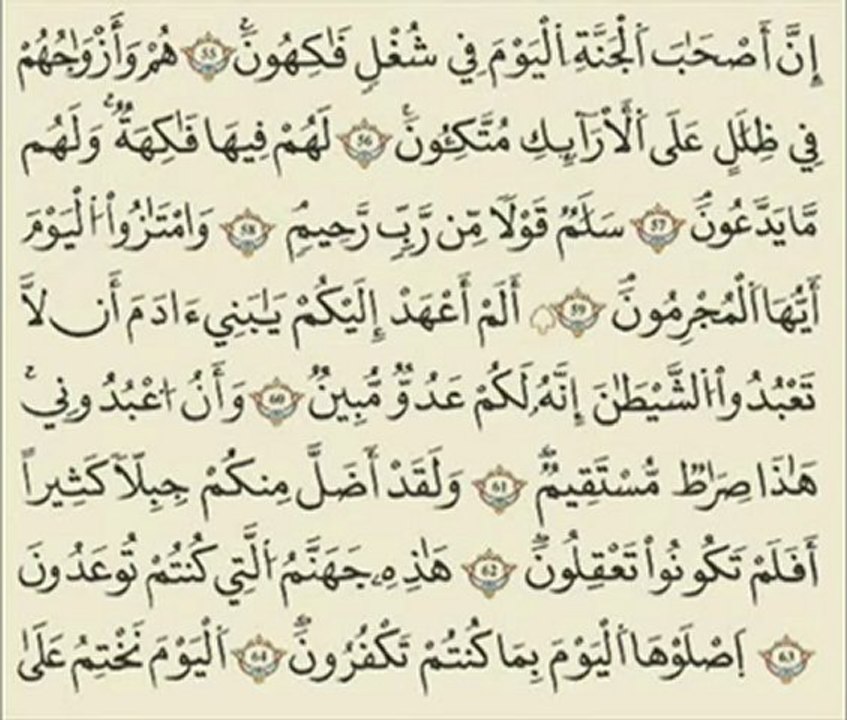 إِنَّ أَصْحَٰبَ اَ۬لْجَنَّةِ اِ۬لْيَوْمَ فِي شُغْلٖ فَٰكِهُونَۖ 55 هُمْ وَأَزْوَٰجُهُمْ
فِي ظِلَٰلٍ عَلَى اَ۬لْأَرَآئِكِ مُتَّكِـُٔونَۖ 56 لَهُمْ فِيهَا فَٰكِهَةٞ وَلَهُم
مَّا يَدَّعُونَۖ 57 سَلَٰمٞ قَوْلٗا مِّن رَّبّٖ رَّحِيمٖ 58 وَامْتَٰزُواْ اُ۬لْيَوْمَ
أَيُّهَا اَ۬لْمُجْرِمُونَۖ 59 أَلَمْ أَعْهَدْ إِلَيْكُمْ يَٰبَنِيٓ ءَادَمَ أَن لَّا
تَعْبُدُواْ اُ۬لشَّيْطَٰنَ إِنَّهُۥ لَكُمْ عَدُوّٞ مُّبِينٞ 60 وَأَنُ اُ۟عْبُدُونِيۖ
هَٰذَا صِرَٰطٞ مُّسْتَقِيمٞۖ 61 وَلَقَدْ أَضَلَّ مِنكُمْ جِبِلّٗا كَثِيراً
أَفَلَمْ تَكُونُواْ تَعْقِلُونَۖ 62 هَٰذِهِۦ جَهَنَّمُ اُ۬لَّتِي كُنتُمْ تُوعَدُونَ
63 اَ۪صْلَوْهَا اَ۬لْيَوْمَ بِمَا كُنتُمْ تَكْفُرُونَۖ 64 اَ۬لْيَوْمَ نَخْتِمُ عَلَىٰ